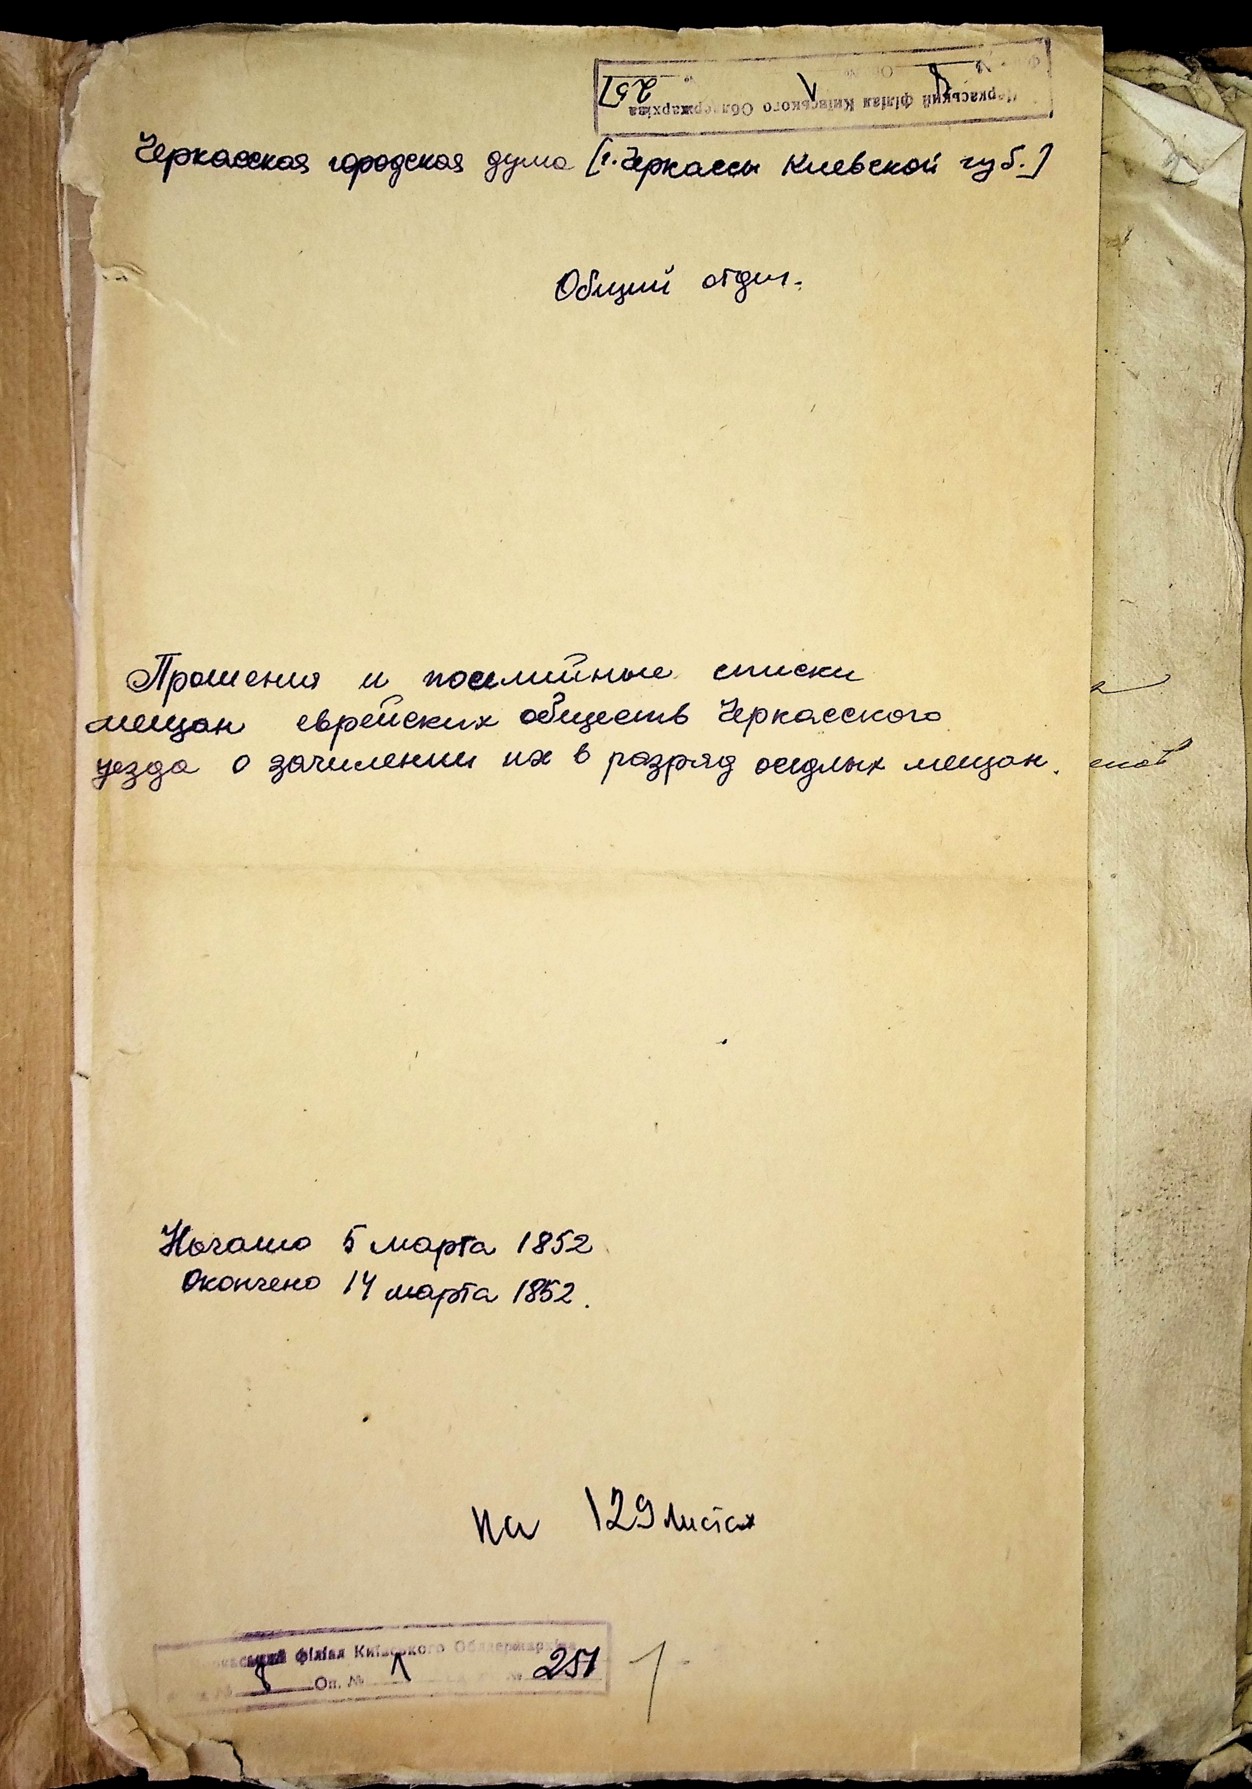 Черкаський філіал Київського Облдержархіва
Оп. № 251
Черкасская городская дума [г. Черкассы Киевской губ.]
Общий отдел.
Прошения и посемийные списки
мещан еврейских обществ Черкасского
уезда о зачислении их в разряд оседлых мещан.
Начато 5 марта 1852
Окончено 14 марта 1852.
на 129 листах
Черкаський філіал Київського Облдержархіва
Оп. № 1 № 251